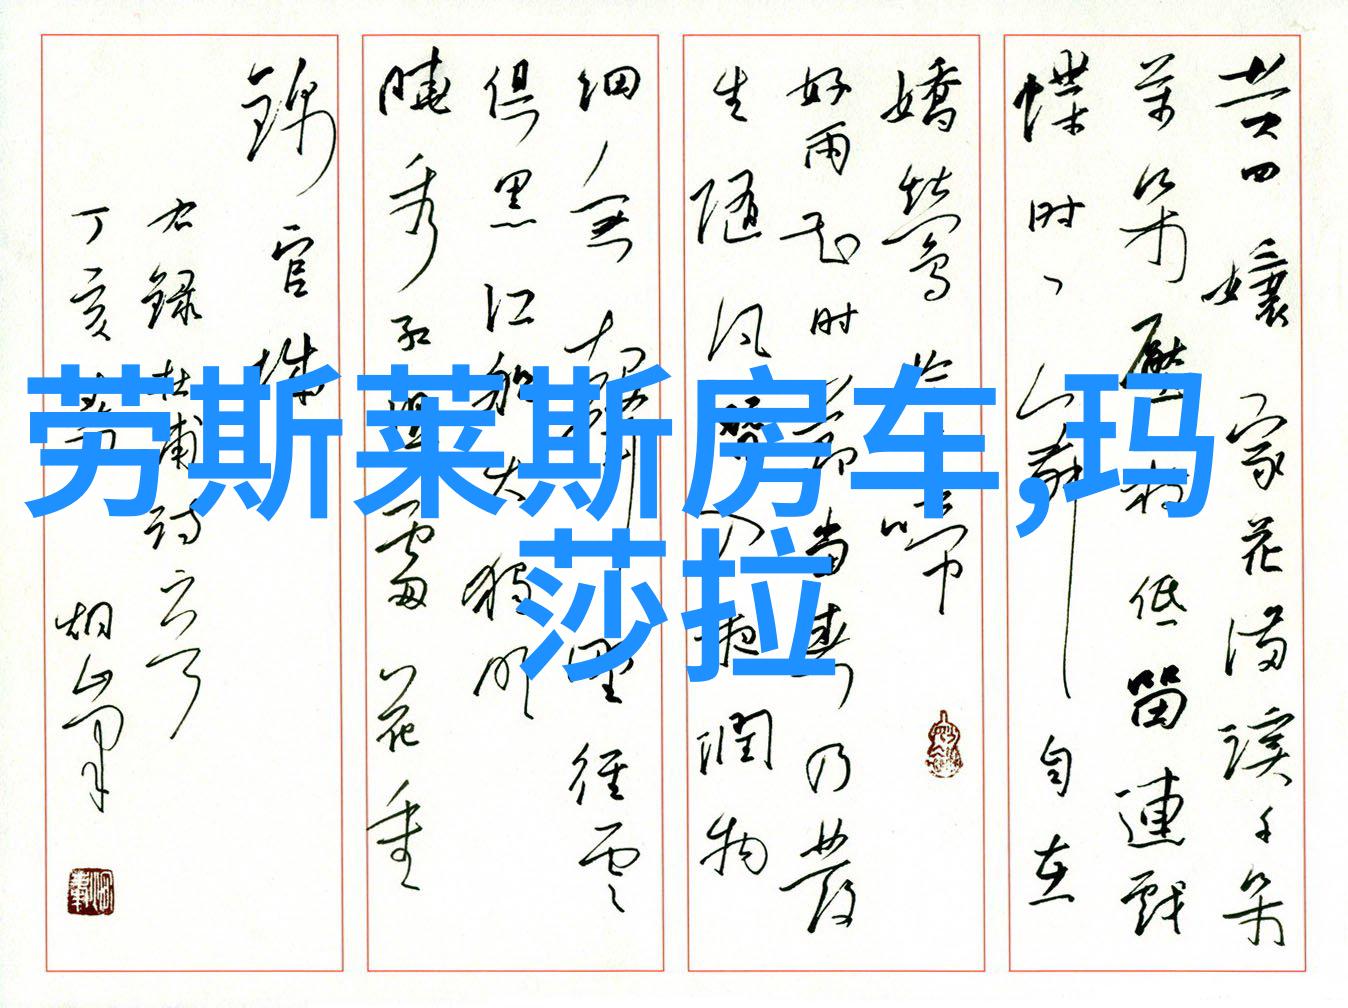 劳斯莱斯房车,玛
莎拉
黄四孃家花满溪千朵
万朵壓枝低留連戏
蝶时丶舞自在
嬌鶯恰恰啼
好雨知时节当春乃發
生随风潜入夜潤物
细无声野径雲
俱黑江船火独明
晓看红湿處花重
锦官城
右録杜甫诗
丁亥